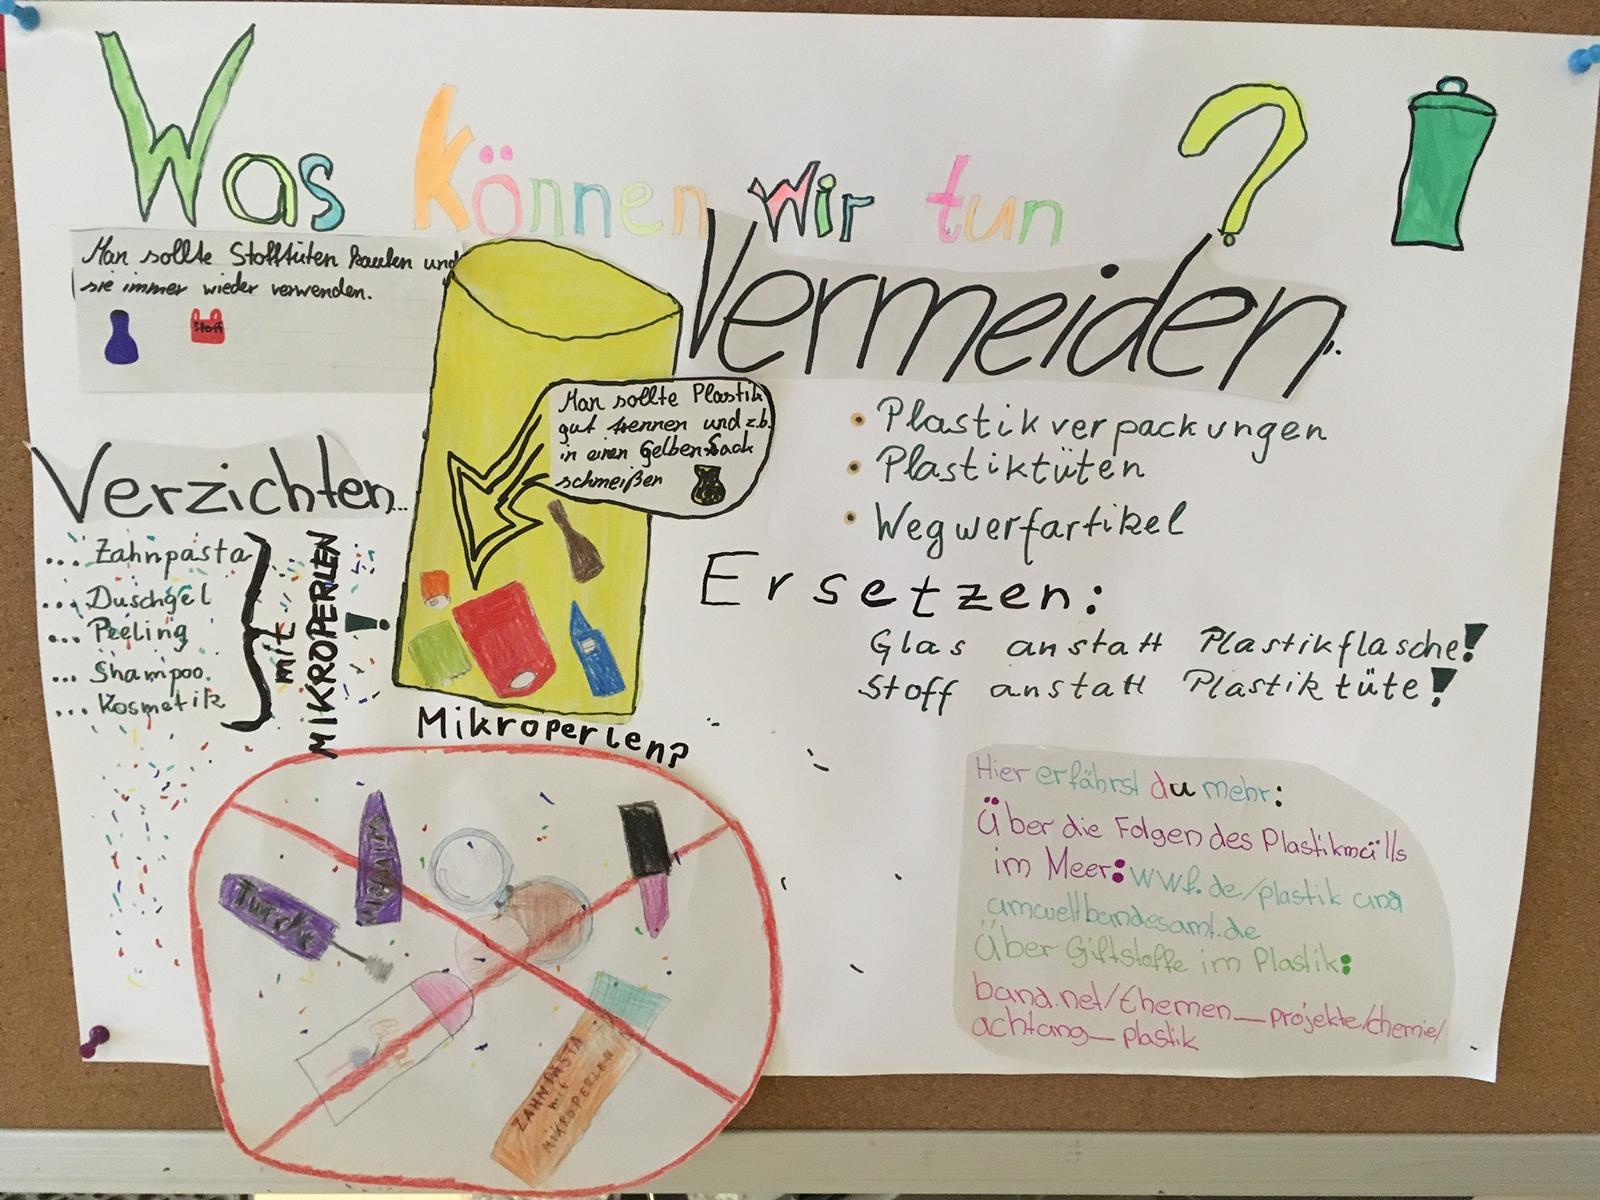 Was können wir tun ?
Man sollte Stofftüten kaufen und
sie immer wieder verwenden.
Stoff
Vermeiden..
• Plastikverpackungen
• Plastiktüten
• Wegwerfartikel
Man sollte Plastik
gut trennen und z.b.
in einen Gelben-Sack
schmeißen
Verzichten...
... Zahnpasta
... Duschgel
... Peeling
... Shampoo.
... Kosmetik
mit
MIKROPERLEN
!
Ersetzen:
Glas anstatt Plastikflasche!
Stoff anstatt Plastiktüte!
Mikroperlen?
ZAHNPASTA
mit
MIKROPERLEN
Hier erfährst du mehr:
Über die Folgen des Plastikmülls
im Meer: wwf.de/plastik und
umweltbundesamt.de
Über Giftstoffe im Plastik:
bund.net/themen_projekte/chemie/
achtung_plastik